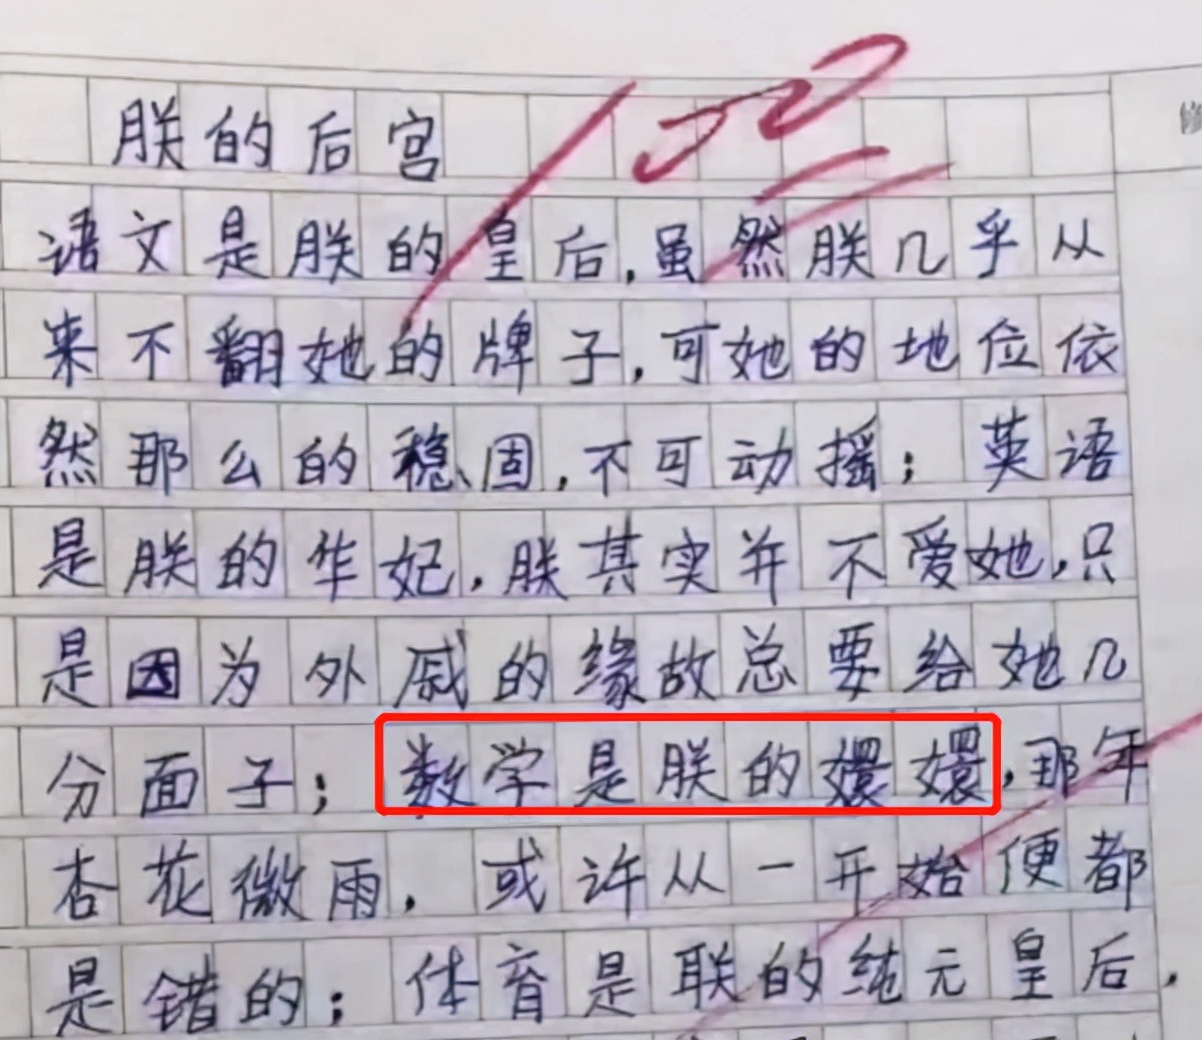 朕的后宫
语文是朕的皇后,虽然朕几乎从
来不翻她的牌子,可她的地位依
然那么的稳固,不可动摇;英语
是朕的华妃,朕其实并不爱她,只
是因为外戚的缘故总要给她几
分面子;数学是朕的嬛嬛,那年
杏花微雨,或许从一开始便都
是错的;体育是联的纯元皇后,